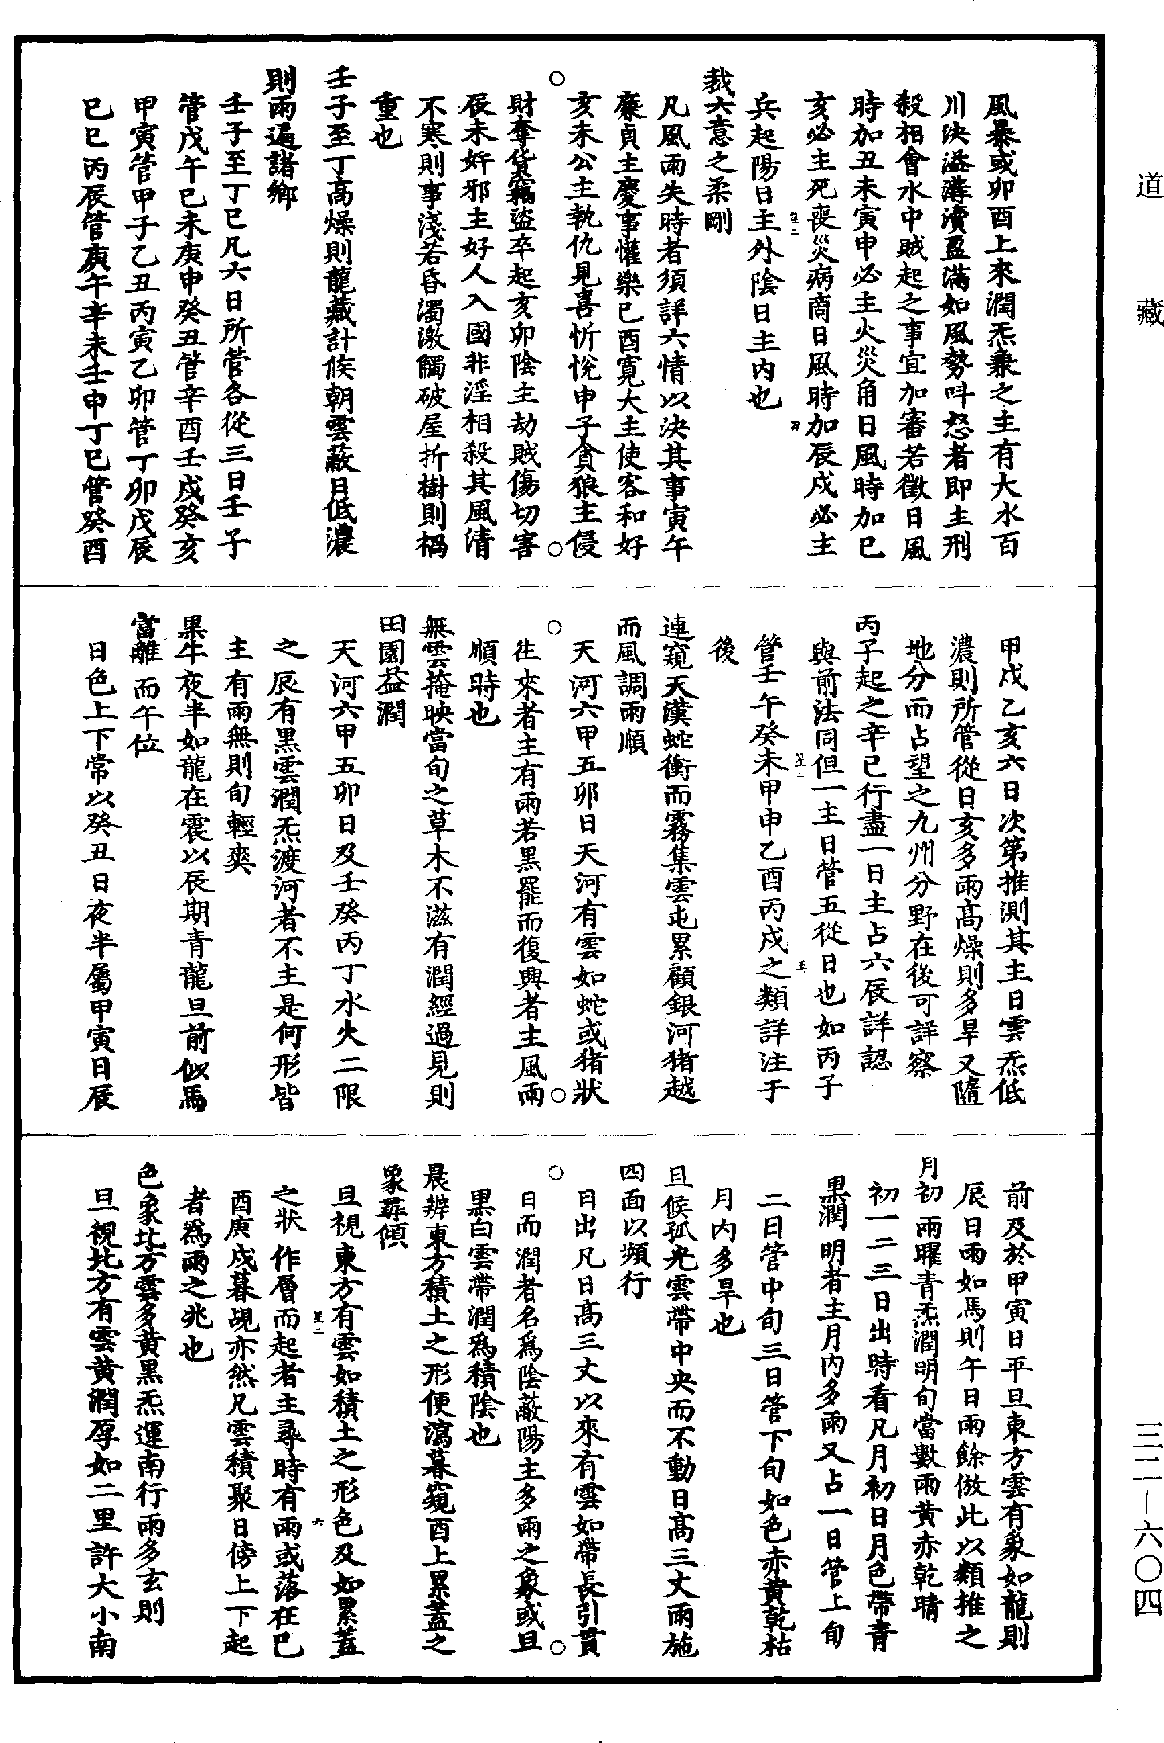 道藏
風暴或卯酉上來潤炁兼之主有大水百
川決溢溝瀆盈滿如風勢吽怒者即主刑
殺相會水中賊起之事宜加審若徵日風
時加丑未寅申必主火災角日風時加巳
亥必主死喪災病商日風時加辰戌必主
兵起陽日主外陰日主內也
裁六意之柔剛
凡風雨失時者須詳六情以決其事寅午
廉貞主慶事懽樂巳酉寬大主使客和好
亥未公主執仇見喜忻悅申子貪狼主侵
財奪貨竊盜卒起亥卯陰主劫賊傷切害
辰未奸邪主好人入國非淫相殺其風清
不寒則事淺若昏濁激觸破屋折樹則禍
重也
壬子至丁高燥則龍藏計候朝雲蔽日低濃
則雨遍諸鄉
壬子至丁巳凡六日所管各從三日壬子
管戊午己未庚申癸丑管辛酉壬戌癸亥
甲寅管甲子乙丑丙寅乙卯管丁卯戊辰
己巳丙辰管庚午辛未壬申丁巳管癸酉
甲戌乙亥六日次第推測其主日雲炁低
濃則所管從日亥多雨高燥則多旱又隨
地分而占望之九州分野在後可詳察
丙子起之辛巳行盡一日主占六辰詳認
與前法同但一主日管五從日也如丙子
管壬午癸未甲申乙酉丙戌之類詳注于
後
連窺天漢蛇衝而霧集雲屯累顧銀河猪越
而風調雨順
天河六甲五卯日天河有雲如蛇或猪狀
往來者主有雨若黑罷而復興者主風雨
順時也
無雲掩映當旬之草木不滋有潤經過見則
田園益潤
天河六甲五卯日及壬癸丙丁水火二限
之辰有黑雲潤炁渡河者不主是何形皆
主有雨無則旬輕爽
果牛夜半如龍在震以辰期青龍旦前似馬
當離而午位
日色上下常以癸丑日夜半屬甲寅日辰
前及於甲寅日平旦東方雲有象如龍則
辰日雨如馬則午日雨餘倣此以類推之
月初兩曜青炁潤明旬當數雨黃赤乾晴
初一二三日出時看凡月初日月色帶青
黑潤明者主月內多雨又占一日管上旬
二日管中旬三日管下旬如色赤黃乾枯
月內多旱也
旦候孤光雲帶中央而不動日高三丈雨施
四面以頻行
日出凡日高三丈以來有雲如帶長引貫
日而潤者名為陰蔽陽主多雨之象或旦
黑白雲帶潤為積陰也
晨辨東方積土之形便瀉暮窺酉上累蓋之
象尋傾
旦視東方有雲如積土之形色及如累蓋
之狀作層而起者主尋時有雨或落在巳
酉庚戌暮覘亦然凡雲積聚日傍上下起
者為雨之兆也
色象北方雲多黃黑炁運南行雨多玄則
旦視北方有雲黃潤厚如二里許大小南
三二—六〇四